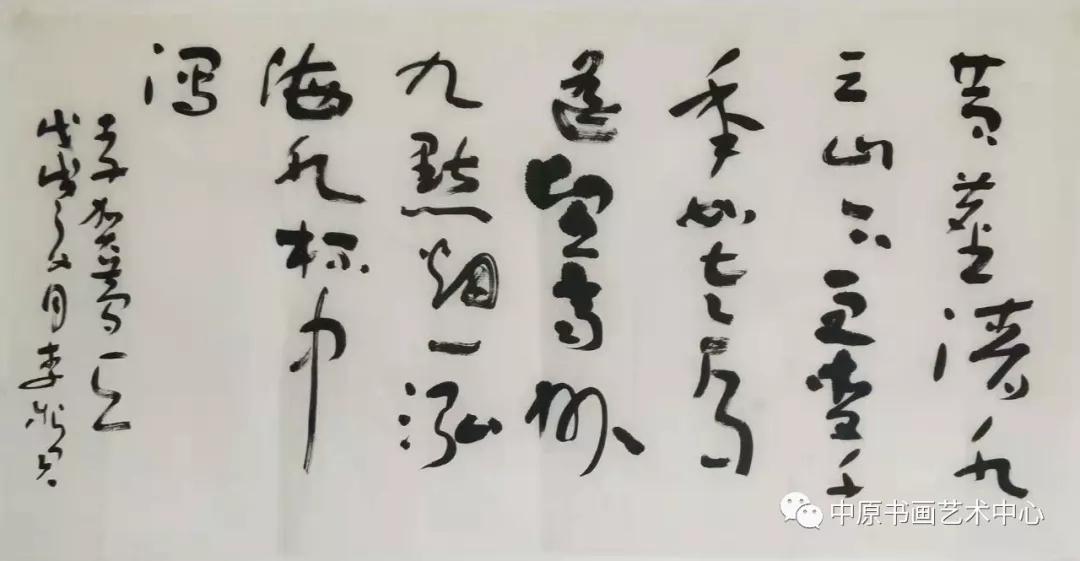 黄尘清水
三山下更变千
年如走马
遥望齐州
九點烟一泓
海水杯中
泻
李贺梦天
戊戌之
月李
中原书画艺术中心